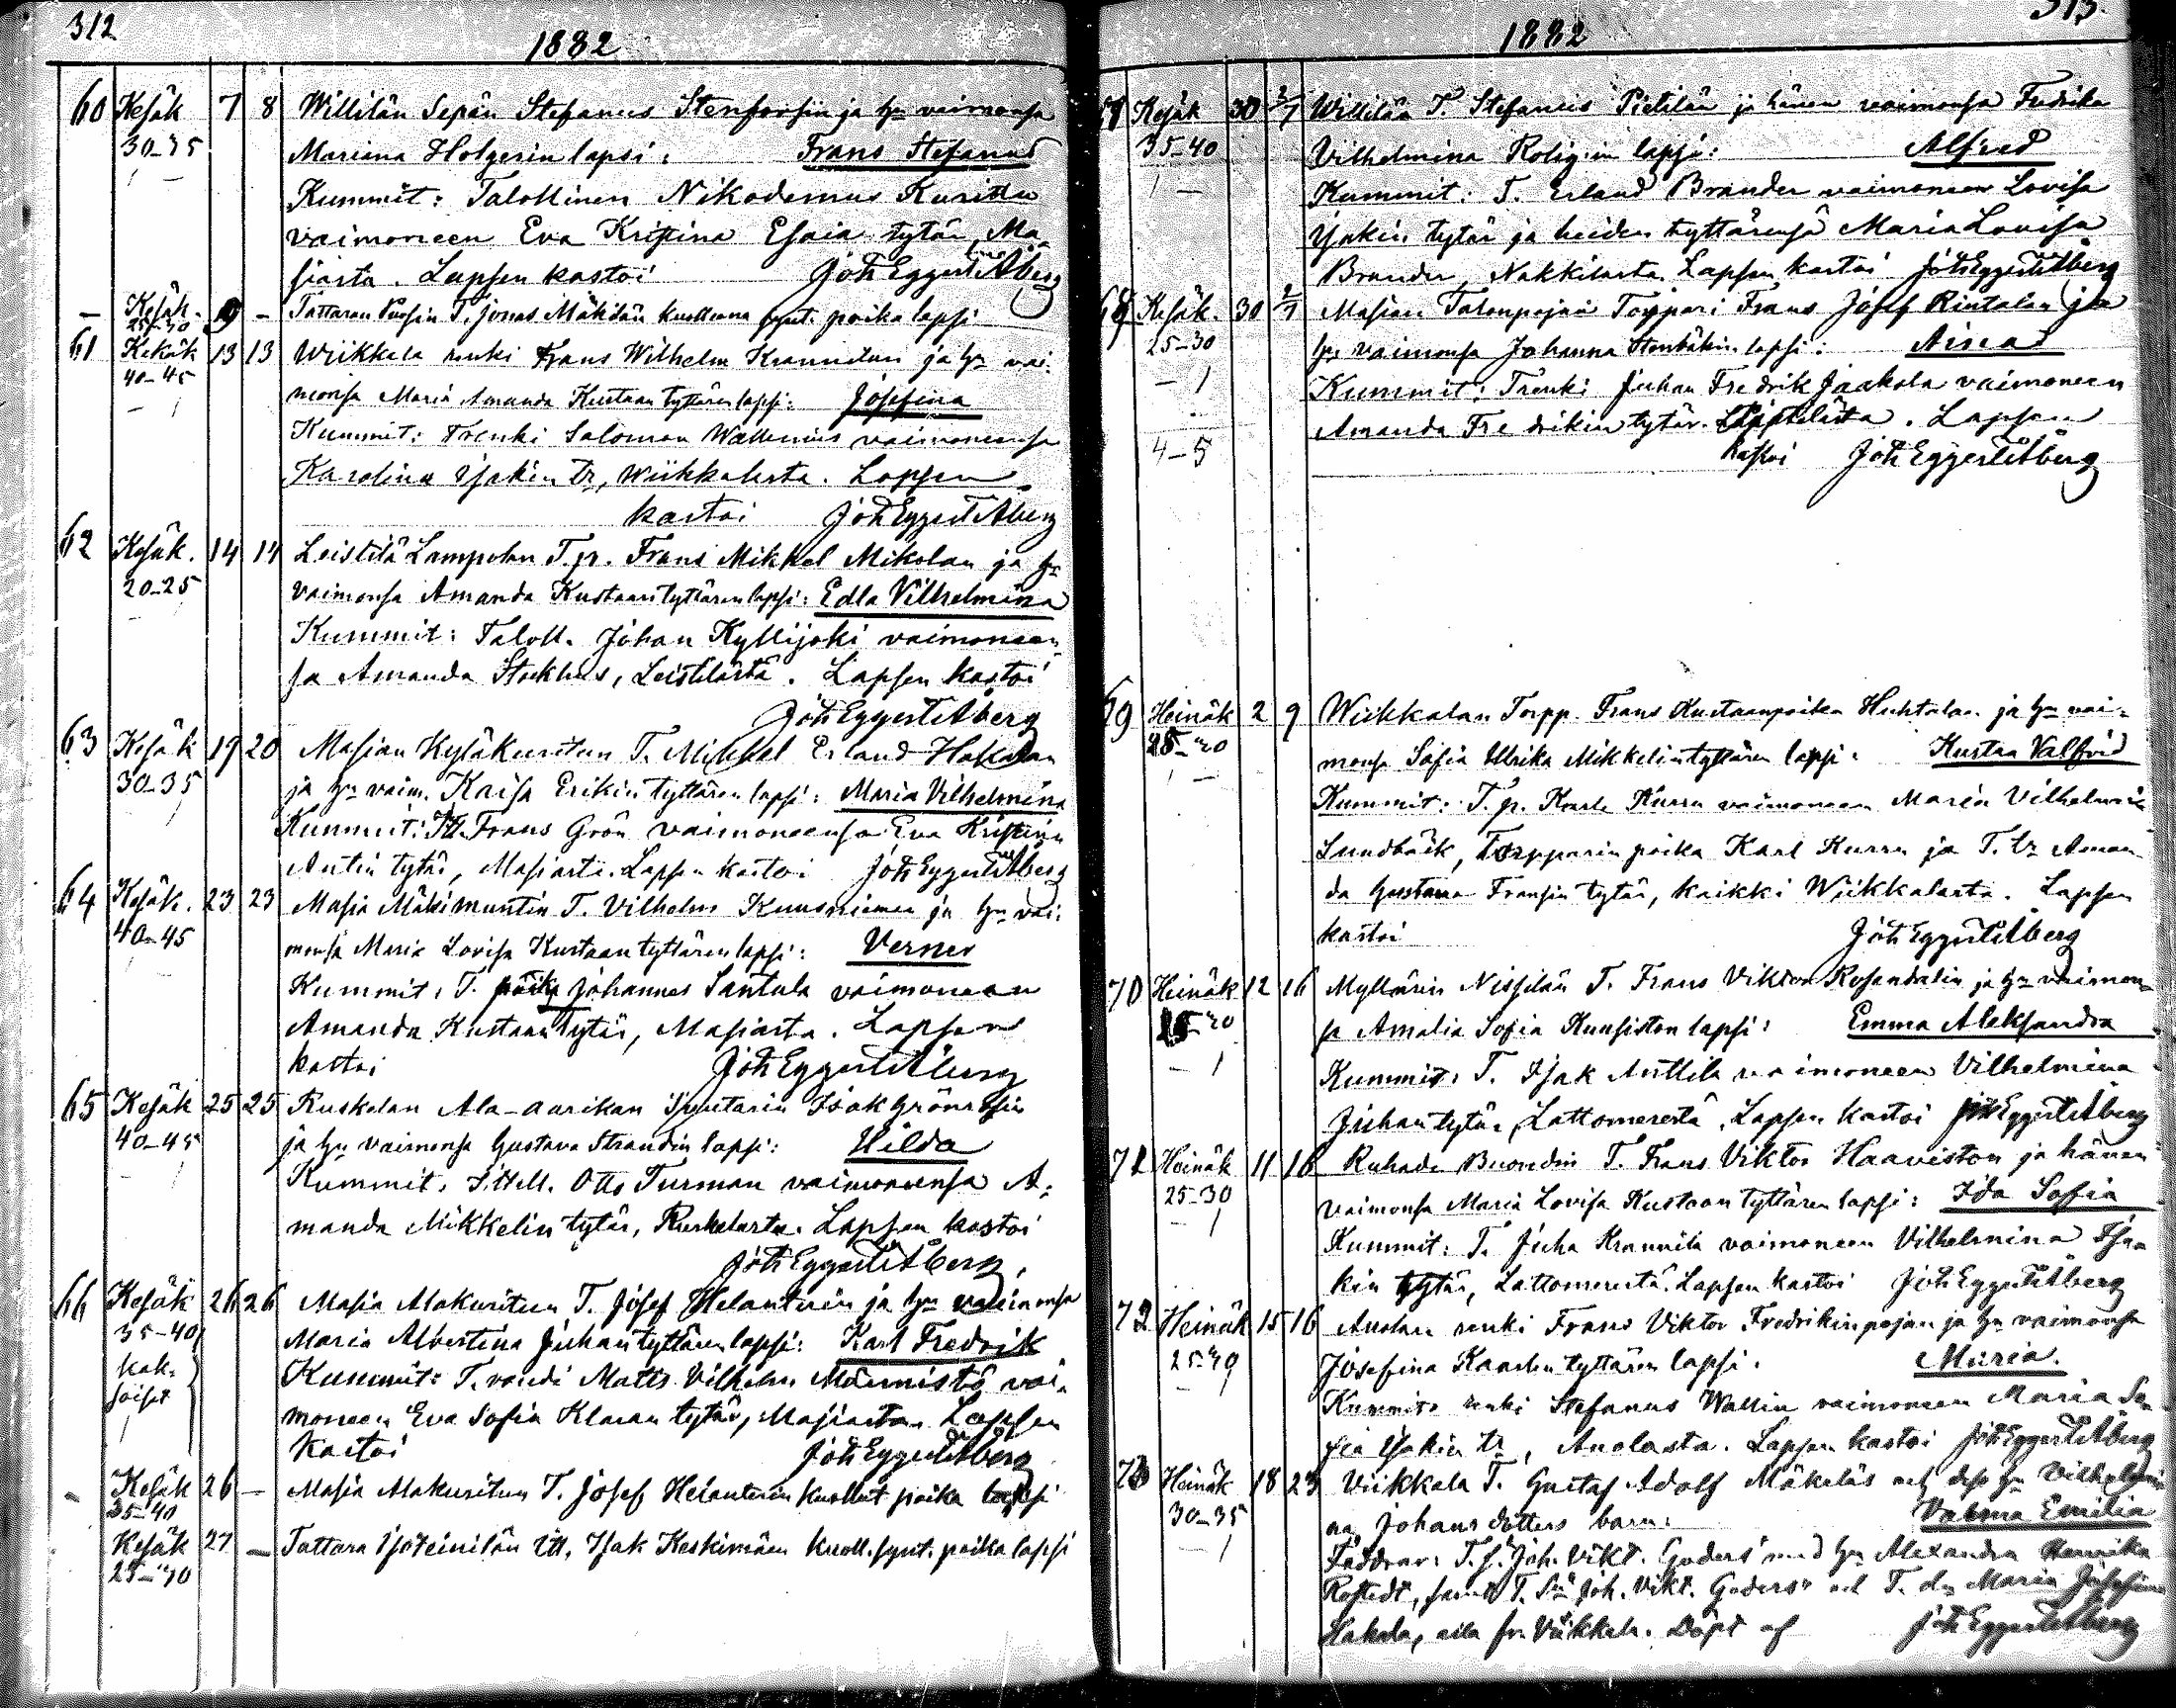 312
1882
60 Kesäk 7 8 Willilän Sepän Stefanus Stenforsin ja hn vaimonsa
30-35 Mariana Holgerin lapsi: Frans Stefanus
Kummit: Talollinen Nikodemus Kuritta
vaimoneen Eva Kristina Esaia tytär, Ma-
siasta. Lapsen kastoi Joh Eggert Åberg
– Kesäk. 9 – Tattaran T. Jonas Mäkilän kuolleena synt. poika lapsi
25-30
61 Kesäk 13 13 Wiikkala renki Frans Wilhelm Krannilan ja hn vai-
40-45 monsa Maria Amanda Kustaan tyttären lapsi: Josefina
Kummit: Trenki Salomon Wallenius vaimonensa
Karolina Isakin tr, Wiikkalasta. Lapsen
kastoi Joh Eggert Åberg
62 Kesäk. 14 14 Leistilä Lampolan T.p. Frans Mikkel Mikolan ja hn
20-25 vaimonsa Amanda Kustaan tyttären lapsi: Edla Vilhelmina
Kummit: Taloll. Johan Kyllijoki vaimoneen-
sa Amanda Stockhus, Leistilästä. Lapsen kastoi
Joh Eggert Åberg
63 Kesäk 19 20 Masian Kysäkuritun T. Mikkel Erland Hakalan
30-35 ja hn vaim. Kaisa Erikin tyttären lapsi: Maria Vilhelmina
Kummit: Frans Grön vaimoneensa Eva Kristina
Antin tytär, Masiasta. Lapsen kastoi Joh Eggert Åberg
64 Kesäk. 23 23 Masia Mäkimuntin T. Vilhelm Kuusniemen ja hn vai-
40-45 monsa Maria Lovisa Kustaan tyttären lapsi: Verner
Kummit: T. poika Johannes Santala vaimoneen
Amanda Kustaan tytär, Masiasta. Lapsen
kastoi Joh Eggert Åberg
65 Kesäk 25 25 Ruskelan Ala-aarikan Isak Grönrosin
40-45 ja hn vaimonsa Gustava Strandin lapsi: Hilda
Kummit: Ittell. Otto Turman vaimonensa A-
manda Mikkelin tytär, Ruskelasta. Lapsen kastoi
Joh Eggert Åberg.
66 Kesäk 26 26 Masia Alakuritun T. Josef Helanterin ja hn vaimonsa
35-40 Maria Albertina Juhan tyttären lapsi: Karl Fredrik
kak- Kummit: T. Matts Vilhelm Männistö vai-
soiset moneen Eva Sofia Klaran tytär, Masiasta. Lapsen
kastoi Joh Eggert Åberg
– Kesäk 26 – Masia Alakuritun T. Josef Helanterin kuollut poika lapsi
35-40
Kesäk 27 – Tattara Isoteinilän itt. Isak Keskimäen kuoll. synt. poika lapsi
25-30
313.
1882
Kesäk 30 2/7 Willilän T. Stefanus Pietilän ja hänen vaimonsa Fredrika
35-40 Vilhelmina Rolig:in lapsi: Alfred
Kummit: T. Erland Brander vaimoneen Lovisa
Isakin tytär ja heiden tyttärensä Maria Lovisa
Brander, Nakkilasta. Lapsen kastoi Joh Eggert Åberg
68 Kesäk. 30 2/7 Masian Talonpojan Torppari Frans Josef Rintalan ja
25-30 hn vaimonsa Johanna Stenbäkin lapsi: Aina
Kummit: Trenki Juhan Fredrik Jaakola vaimoneen
Amanda Fredrikin tytär. Lapsen
4-5 kastoi Joh Eggert Åberg
69 Heinäk 2 9 Wiikkalan Torpp. Frans Kustaanpoika Huhtalan ja hn vai-
25-30 monsa Sofia Ulrika Mikkelin tyttären lapsi: Kustaa Valfrid
Kummit: T.p. Karle Kurru vaimoneen Maria Vilhelmina
Sundbäck, Torpparin poika Karl Kurru ja T. tr Aman-
da Gustava Fransin tytär, kaikki Wiikkalasta. Lapsen
kastoi Joh Eggert Åberg
70 Heinäk 12 16 Myllärin Nissilän T. Frans Viktor Rosendalin ja hn vaimon-
25-30 sa Amalia Sofia Kuusiston lapsi: Emma Aleksandra
Kummit: T. Isak Anttila vaimoneen Vilhelmina
Juhan tytär, Lattomerestä. Lapsen kastoi Joh Eggert Åberg
71 Heinäk 11 16 Ruhade T. Frans Viktor Haaviston ja hänen
25-30 vaimonsa Maria Lovisa Kustaan tyttären lapsi: Ida Sofia
Kummit: T. Juha Krannila vaimoneen Vilhelmina Isa-
kin tytär, Lattomerestä. Lapsen kastoi Joh Eggert Åberg
72 Heinäk 15 16 Anolan renki Frans Viktor Fredrikin pojan ja hn vaimonsa
25-30 Josefina Kaarlen tyttären lapsi: Maria.
Kummit: renki Stefanus Wallin vaimoneen Maria So-
fia Isakin tr, Anolasta. Lapsen kastoi Joh Eggert Åberg
73 Heinäk 18 23 Viikkala T. Gustaf Adolf Mäkeläs och dess hu Vilhelmi-
30-35 na Johansdotters barn: Valma Emilia
Faddrar: T. s. Joh. Vikt. Goders med hu Alexandra Henrika
Rostedt, samt T. Sn Joh. Vikt. Goders och T. dr Maria Josefina
Hakala, alla fr. Viikkala. Döpt af Joh Eggert Åberg